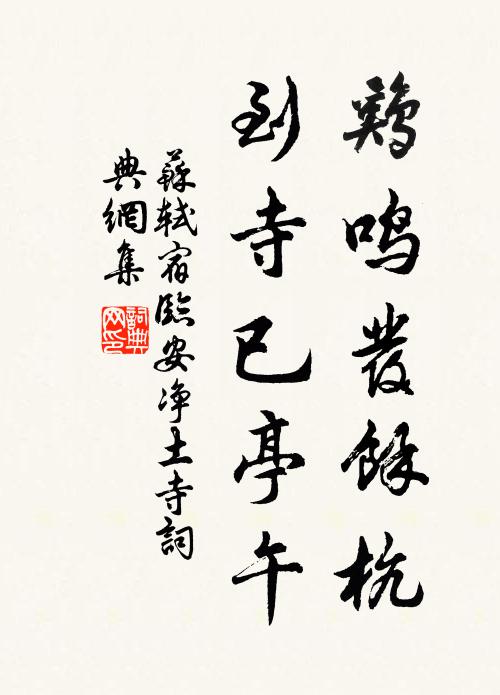 鷄鳴發餘杭
到寺已亭午
蘇軾宿臨安净土寺詞
典網集
詞典网印